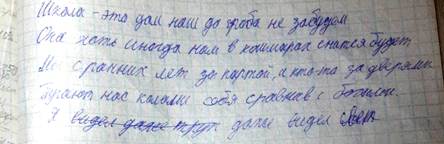 Школа - эта дом наш до гроба не забудем
Она хоть иногда нам в кошмарах снится будет
Мы с ранних лет за партой, а кто-та за дверями
Пугают нас колами себя сравнив с богами.
Я видел даже труп даже видел